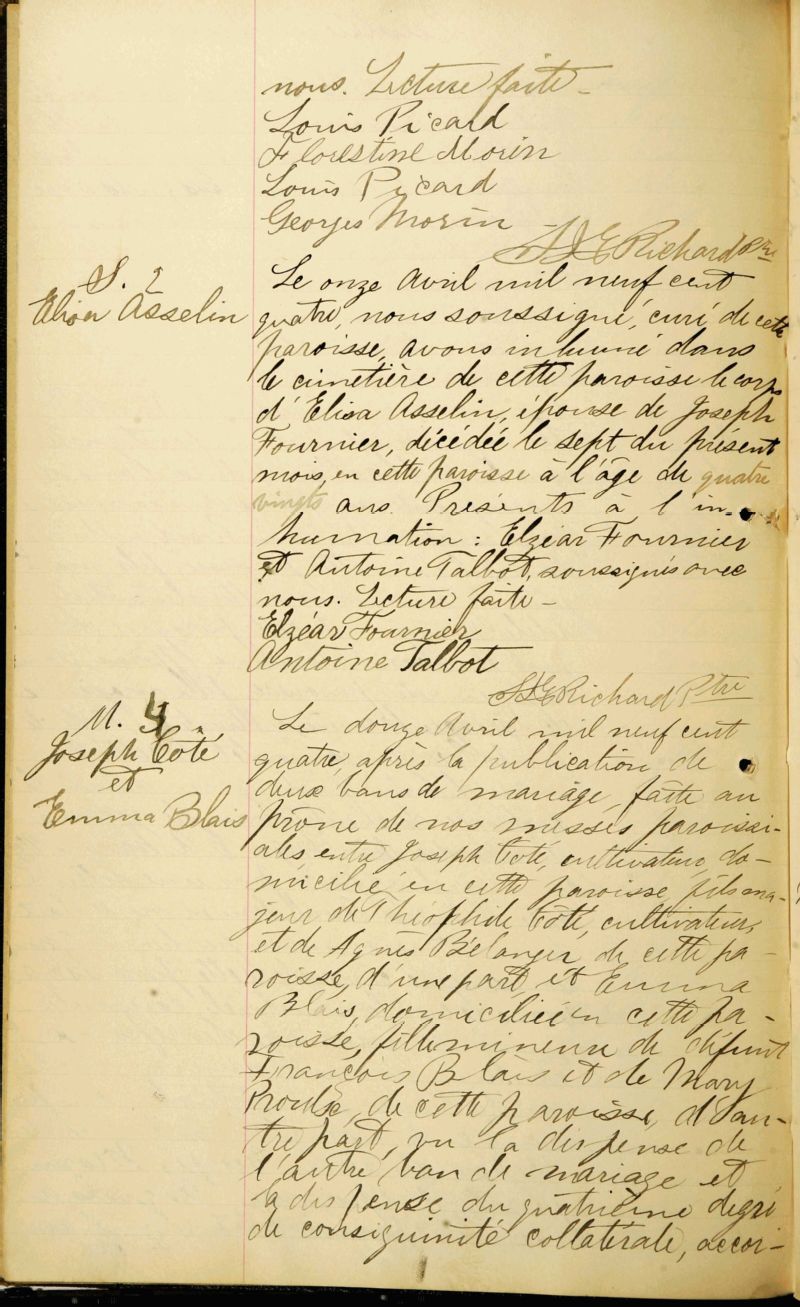 nous. Lecture faite –
Louis Picard
Florestine Morin
Louis Picard
Georges Morin –
Richard Ptre
S. 2
Elisa Asselin
Le onze Avril mil neuf cent
quatre, nous soussigné, curé de cette
paroisse, avons inhumé dans
le cimetière de cette paroisse le corps
d'Elisa Asselin, épouse de Joseph
Fournier, décédée le sept du présent
mois, en cette paroisse à l'âge de quatre
vingts ans. Présents à l'in-
humation : Elzéar Fournier
et Antoine Talbot, soussignés avec
nous. Lecture faite –
Elzéar Fournier
Antoine Talbot
Richard Ptre
M. 4
Joseph Coté
et
Emma Blais
Le douze Avril mil neuf cent
quatre, après la publication de
deux bans de mariage, faite au
prône de nos messes paroissi-
ales, entre Joseph Coté, cultivateur, do-
micilié en cette paroisse, fils ma-
jeur de Théophile Coté, cultivateur,
et de Agnès Bélanger de cette pa-
roisse, d'une part, et Emma
Blais, domiciliée en cette pa-
roisse, fille mineure de défunt
François Blais et de Mary
Proulx, de cette paroisse, d'au-
tre part, vu la dispense de
l'autre ban de mariage et
la dispense du quatrième degré
de consiguinité collatérale, accor-